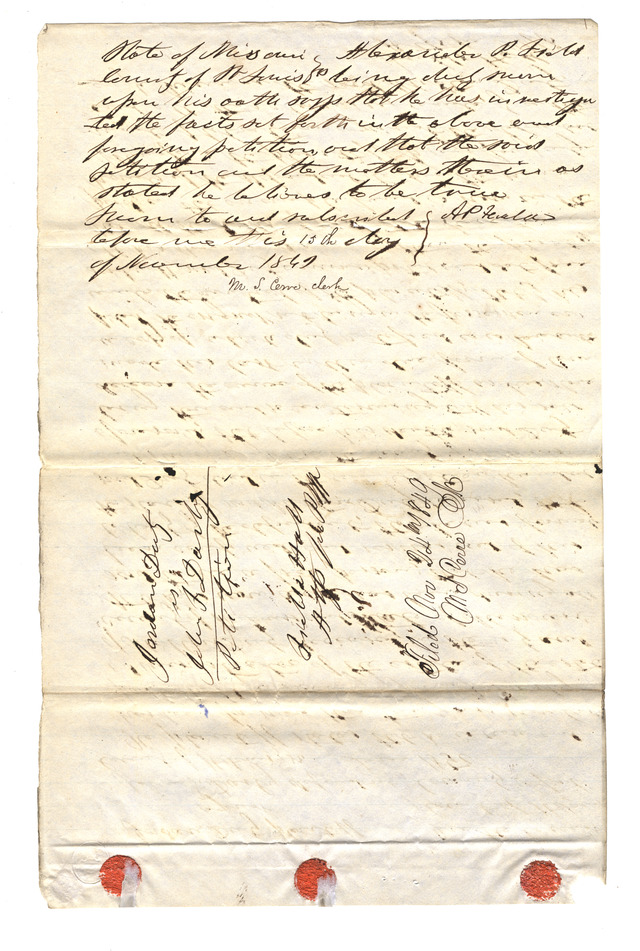 State of Missouri } Alexander P. Field
County of St Louis } ss being duly sworn
upon his oath says that he has investiga
ted the facts set forth in the above and
foregoing petition, and that the said
petition and the matters therein as
stated he believes to be true
Sworn to and subscribed } A P Field
before me this 15th day
of November 1849
M. S. Cerre. clerk
Jordan Darby
vs
John F Darby
Petition
Field & Hall
Atts for Plff
Filed Nov 24th 1849
M S Cerre Clk